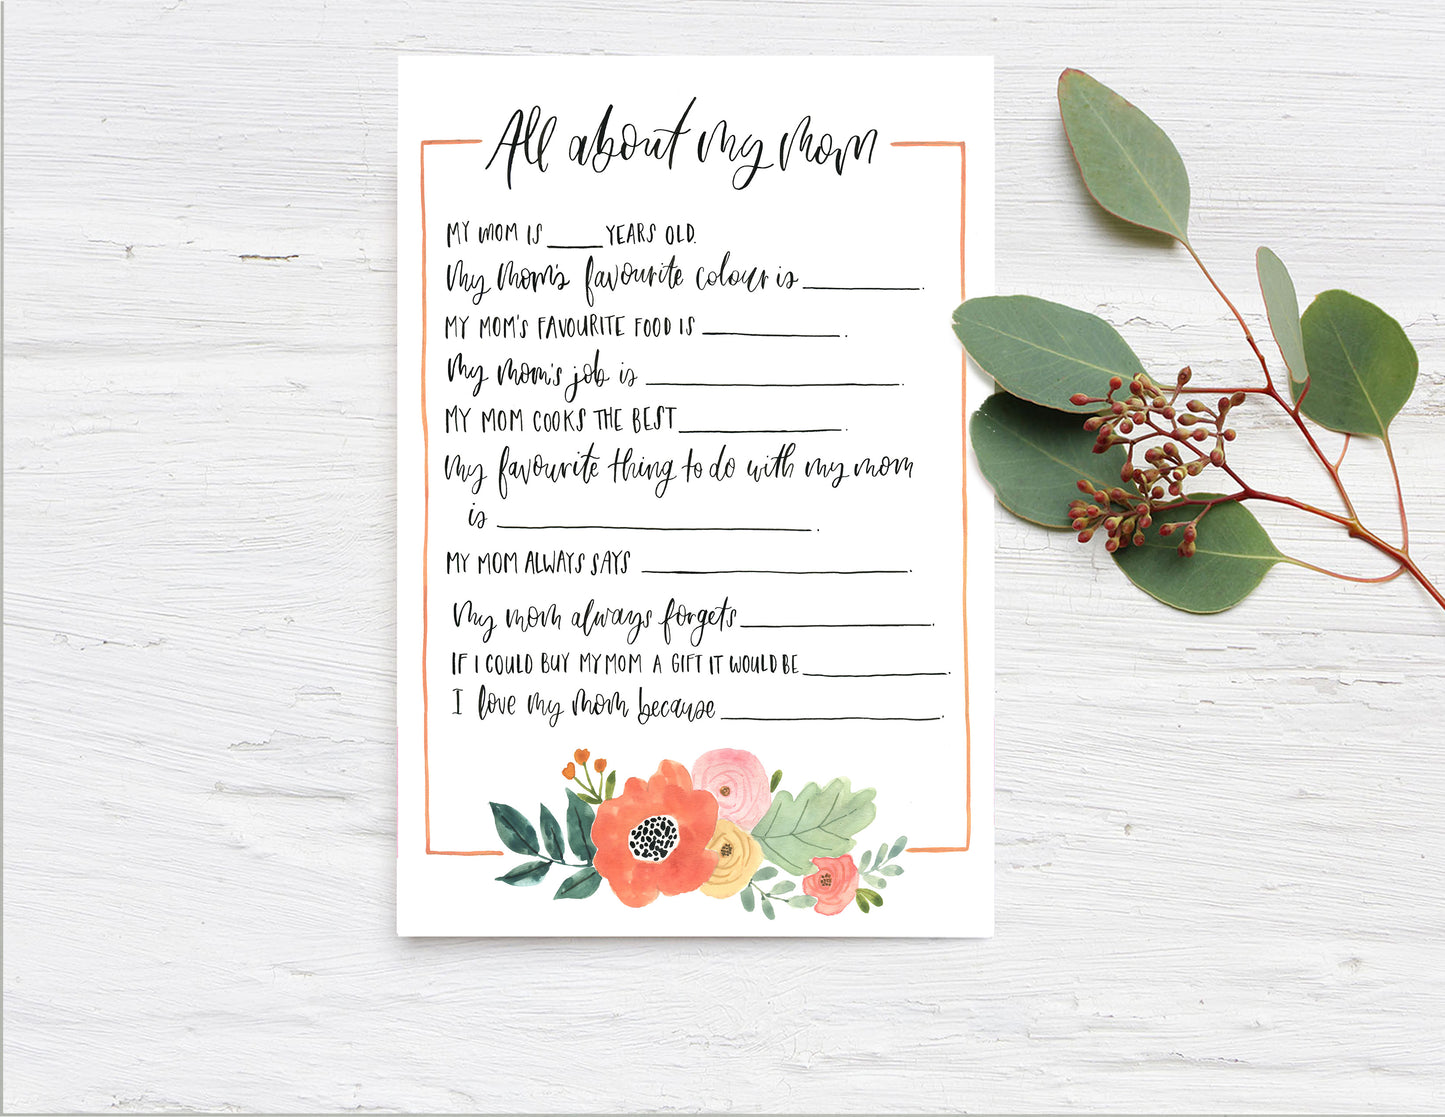 All about my mom
MY MOM IS ____ YEARS OLD.
My mom's favourite colour is ________.
MY MOM'S FAVOURITE FOOD IS ________.
My mom's job is ________.
MY MOM COOKS THE BEST ________.
My favourite thing to do with my mom
is ________.
MY MOM ALWAYS SAYS ________.
My mom always forgets ________.
IF I COULD BUY MY MOM A GIFT IT WOULD BE ________.
I love my mom because ________.